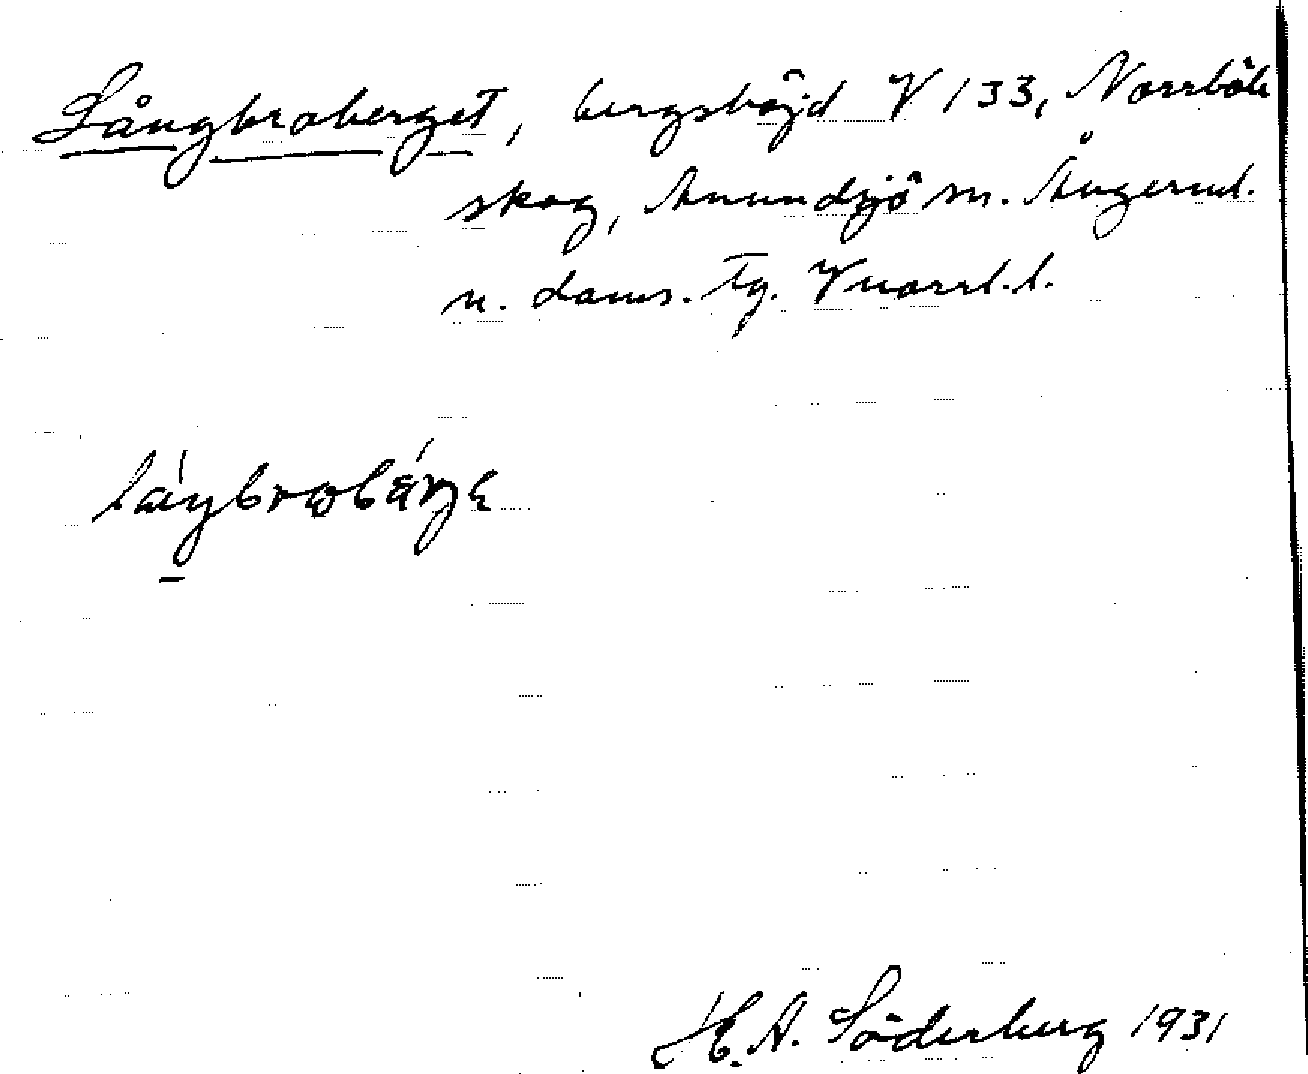 Långbroberget, bergshöjd V 133, Norrböle
skog, Anundsjö sn. Ångerml.
n. doms. Tg. Vnorrl. l.
H. A. Söderberg 1931